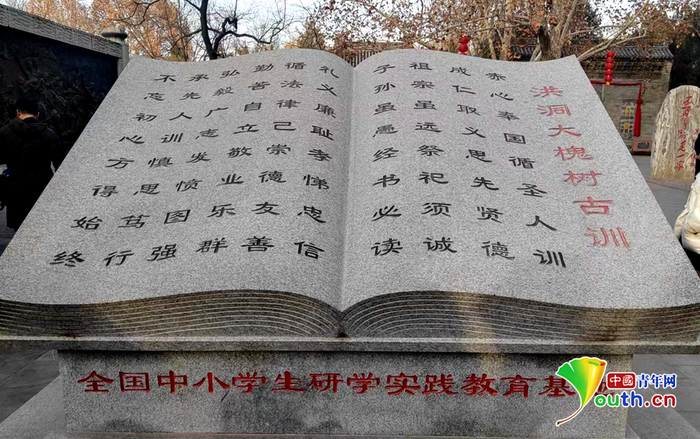 洪洞大槐树古训
恭心奉国循圣人训
成仁取义思先贤德
祖宗虽远祭祀须诚
子孙虽愚经书必读
礼义廉耻孝悌忠信
循法律己崇德友善
勤苦自立敬业乐群
弘毅广志发愤图强
承先人训慎思笃行
不忘初心方得始终
全国中小学生研学实践教育基
中國青年网
Youth.cn